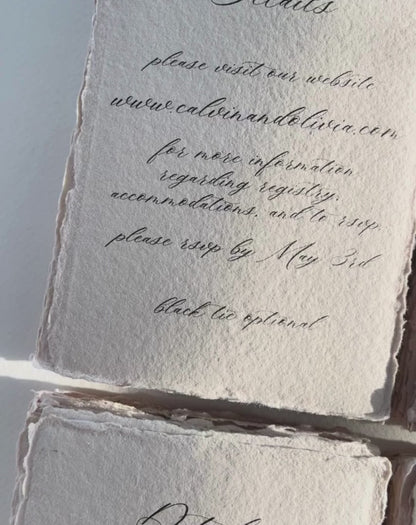 Details
please visit our website
www.calvinandolivia.com
for more information
regarding registry,
accommodations, and to rsvp.
please rsvp by May 3rd
black tie optional